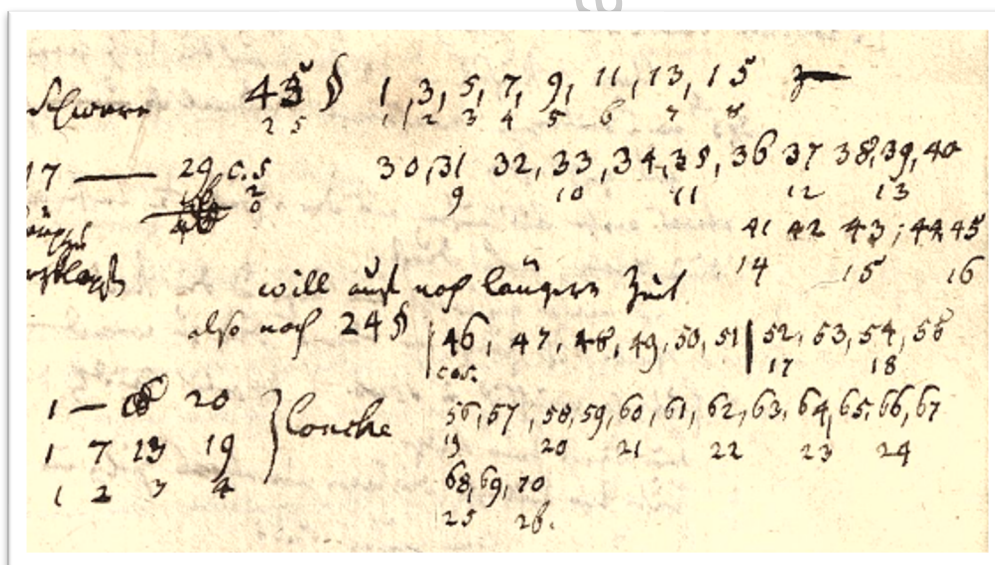 schwere 43 § 1, 3, 5, 7, 9, 11, 13, 15
2 5 1 2 3 4 5 6 7 8
17 — 29 c.s 30, 31 32, 33, 34, 35, 36 37 38, 39, 40
2 9 10 11 12 13
0
41 42 43, 44 45
14 15 16
will auch noch längere Zeit
also noch 24 § 46, 47, 48, 49, 50, 51 | 52, 53, 54, 55
cas. 17 18
1 — 20 Couche 56, 57, 58, 59, 60, 61, 62, 63, 64, 65, 66, 67
1 7 13 19 19 20 21 22 23 24
1 2 3 4 68, 69, 70
25 26.